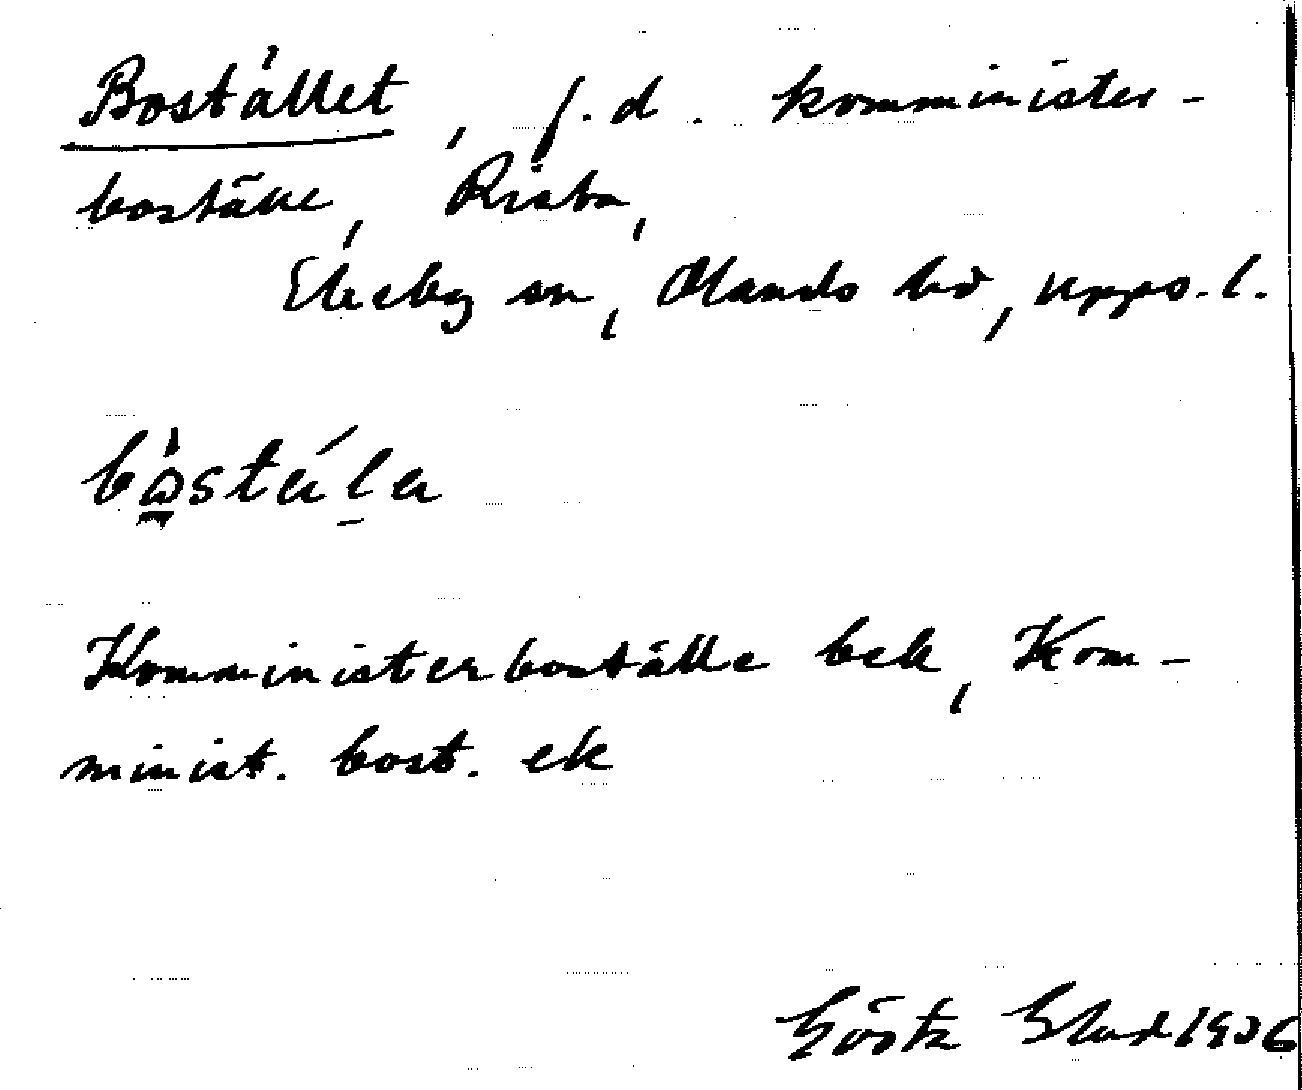 Bostället, f.d. komminister-
boställe, Risba,
Ekeby sn, Olands hd, Upps. l.
bo̲stä́l̲a
Komministerboställe bek, Kom-
minist. bost. ek
Gösta Blad 1936